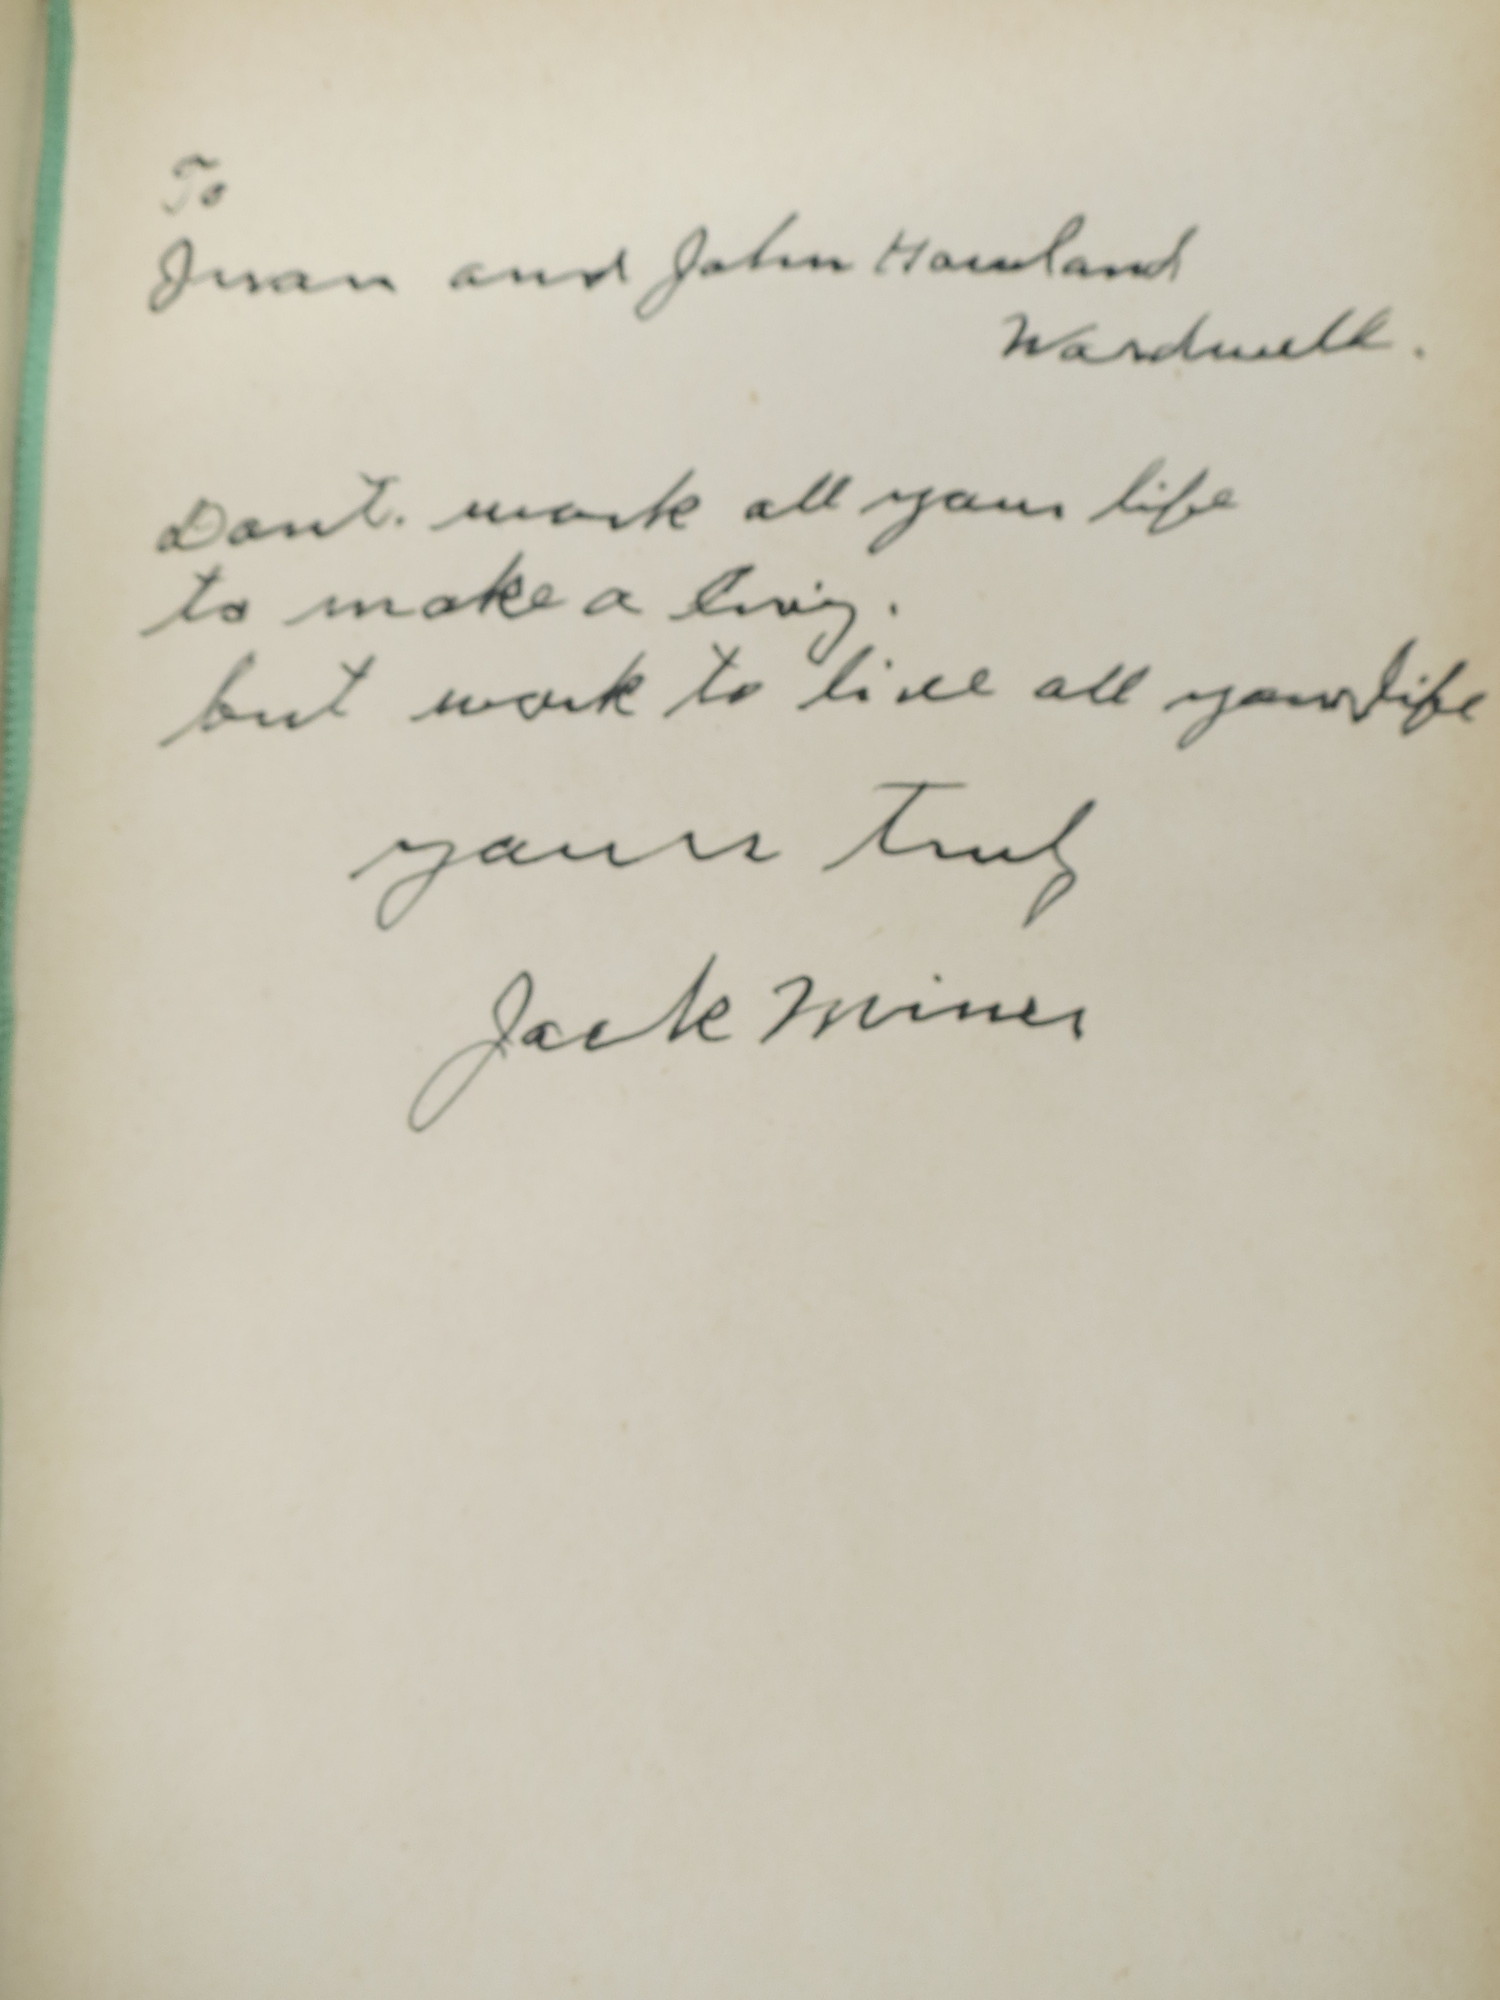 To
and John Howland
Wardwell.
Dont. work all your life
to make a living.
but work to live all your life
yours truly
Jack Miner